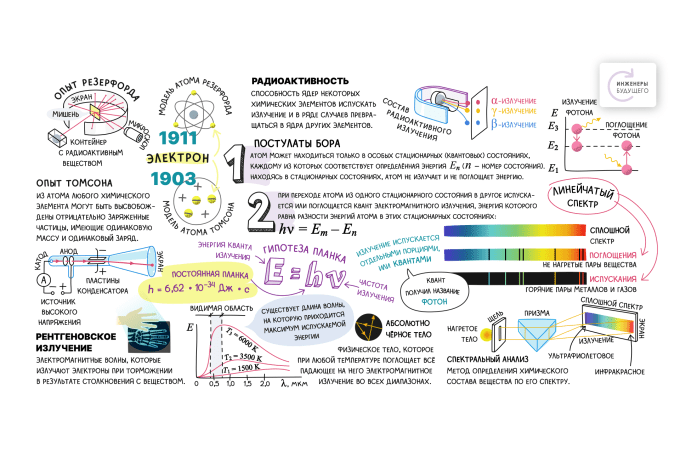 ИНЖЕНЕРЫ
БУДУЩЕГО
ОПЫТ РЕЗЕРФОРДА
ЭКРАН
МИШЕНЬ
МИКРОСКОП
КОНТЕЙНЕР
С РАДИОАКТИВНЫМ
ВЕЩЕСТВОМ
МОДЕЛЬ АТОМА РЕЗЕРФОРДА
1911
ЭЛЕКТРОН
1903
МОДЕЛЬ АТОМА ТОМСОНА
РАДИОАКТИВНОСТЬ
СПОСОБНОСТЬ ЯДЕР НЕКОТОРЫХ
ХИМИЧЕСКИХ ЭЛЕМЕНТОВ ИСПУСКАТЬ
ИЗЛУЧЕНИЕ И В РЯДЕ СЛУЧАЕВ ПРЕВРА-
ЩАТЬСЯ В ЯДРА ДРУГИХ ЭЛЕМЕНТОВ.
СОСТАВ
РАДИОАКТИВНОГО
ИЗЛУЧЕНИЯ
α-ИЗЛУЧЕНИЕ
γ-ИЗЛУЧЕНИЕ
β-ИЗЛУЧЕНИЕ
ИЗЛУЧЕНИЕ
ФОТОНА
ПОГЛОЩЕНИЕ
ФОТОНА
E
E3
E2
E1
1 ПОСТУЛАТЫ БОРА
АТОМ МОЖЕТ НАХОДИТЬСЯ ТОЛЬКО В ОСОБЫХ СТАЦИОНАРНЫХ (КВАНТОВЫХ) СОСТОЯНИЯХ,
КАЖДОМУ ИЗ КОТОРЫХ СООТВЕТСТВУЕТ ОПРЕДЕЛЁННАЯ ЭНЕРГИЯ En (n – НОМЕР СОСТОЯНИЯ).
НАХОДЯСЬ В СТАЦИОНАРНЫХ СОСТОЯНИЯХ, АТОМ НЕ ИЗЛУЧАЕТ И НЕ ПОГЛОЩАЕТ ЭНЕРГИЮ.
2 ПРИ ПЕРЕХОДЕ АТОМА ИЗ ОДНОГО СТАЦИОНАРНОГО СОСТОЯНИЯ В ДРУГОЕ ИСПУСКА-
ЕТСЯ ИЛИ ПОГЛОЩАЕТСЯ КВАНТ ЭЛЕКТРОМАГНИТНОГО ИЗЛУЧЕНИЯ, ЭНЕРГИЯ КОТОРОГО
РАВНА РАЗНОСТИ ЭНЕРГИЙ АТОМА В ЭТИХ СТАЦИОНАРНЫХ СОСТОЯНИЯХ:
hν = Em – En
ОПЫТ ТОМСОНА
ИЗ АТОМА ЛЮБОГО ХИМИЧЕСКОГО
ЭЛЕМЕНТА МОГУТ БЫТЬ ВЫСВОБОЖ-
ДЕНЫ ОТРИЦАТЕЛЬНО ЗАРЯЖЕННЫЕ
ЧАСТИЦЫ, ИМЕЮЩИЕ ОДИНАКОВУЮ
МАССУ И ОДИНАКОВЫЙ ЗАРЯД.
КАТОД
АНОД
ЭКРАН
A
ПЛАСТИНЫ
КОНДЕНСАТОРА
ИСТОЧНИК
ВЫСОКОГО
НАПРЯЖЕНИЯ
ЭНЕРГИЯ КВАНТА
ИЗЛУЧЕНИЯ
ГИПОТЕЗА ПЛАНКА
E=hν
ПОСТОЯННАЯ ПЛАНКА
h = 6,62 · 10⁻³⁴ ДЖ · с
ЧАСТОТА
ИЗЛУЧЕНИЯ
ИЗЛУЧЕНИЕ ИСПУСКАЕТСЯ
ОТДЕЛЬНЫМИ ПОРЦИЯМИ,
ИЛИ КВАНТАМИ
КВАНТ
ПОЛУЧИЛ НАЗВАНИЕ
ФОТОН
ЛИНЕЙЧАТЫЙ
СПЕКТР
СПЛОШНОЙ
СПЕКТР
ПОГЛОЩЕНИЯ
НЕ НАГРЕТЫЕ ПАРЫ ВЕЩЕСТВА
ИСПУСКАНИЯ
ГОРЯЧИЕ ПАРЫ МЕТАЛЛОВ И ГАЗОВ
РЕНТГЕНОВСКОЕ
ИЗЛУЧЕНИЕ
ЭЛЕКТРОМАГНИТНЫЕ ВОЛНЫ, КОТОРЫЕ
ИЗЛУЧАЮТ ЭЛЕКТРОНЫ ПРИ ТОРМОЖЕНИИ
В РЕЗУЛЬТАТЕ СТОЛКНОВЕНИЯ С ВЕЩЕСТВОМ.
ВИДИМАЯ ОБЛАСТЬ
E
T1 = 6000 K
T1 = 3500 K
T1 = 1500 K
0 0,5 1,0 1,5 2,0 λ, МКМ
СУЩЕСТВУЕТ ДЛИНА ВОЛНЫ,
НА КОТОРУЮ ПРИХОДИТСЯ
МАКСИМУМ ИСПУСКАЕМОЙ
ЭНЕРГИИ
АБСОЛЮТНО
ЧЁРНОЕ ТЕЛО
ФИЗИЧЕСКОЕ ТЕЛО, КОТОРОЕ
ПРИ ЛЮБОЙ ТЕМПЕРАТУРЕ ПОГЛОЩАЕТ ВСЁ
ПАДАЮЩЕЕ НА НЕГО ЭЛЕКТРОМАГНИТНОЕ
ИЗЛУЧЕНИЕ ВО ВСЕХ ДИАПАЗОНАХ.
НАГРЕТОЕ
ТЕЛО
ЩЕЛЬ
ПРИЗМА
СПЛОШНОЙ СПЕКТР
ЭКРАН
ИЗЛУЧЕНИЕ
УЛЬТРАФИОЛЕТОВОЕ
ИНФРАКРАСНОЕ
СПЕКТРАЛЬНЫЙ АНАЛИЗ
МЕТОД ОПРЕДЕЛЕНИЯ ХИМИЧЕСКОГО
СОСТАВА ВЕЩЕСТВА ПО ЕГО СПЕКТРУ.